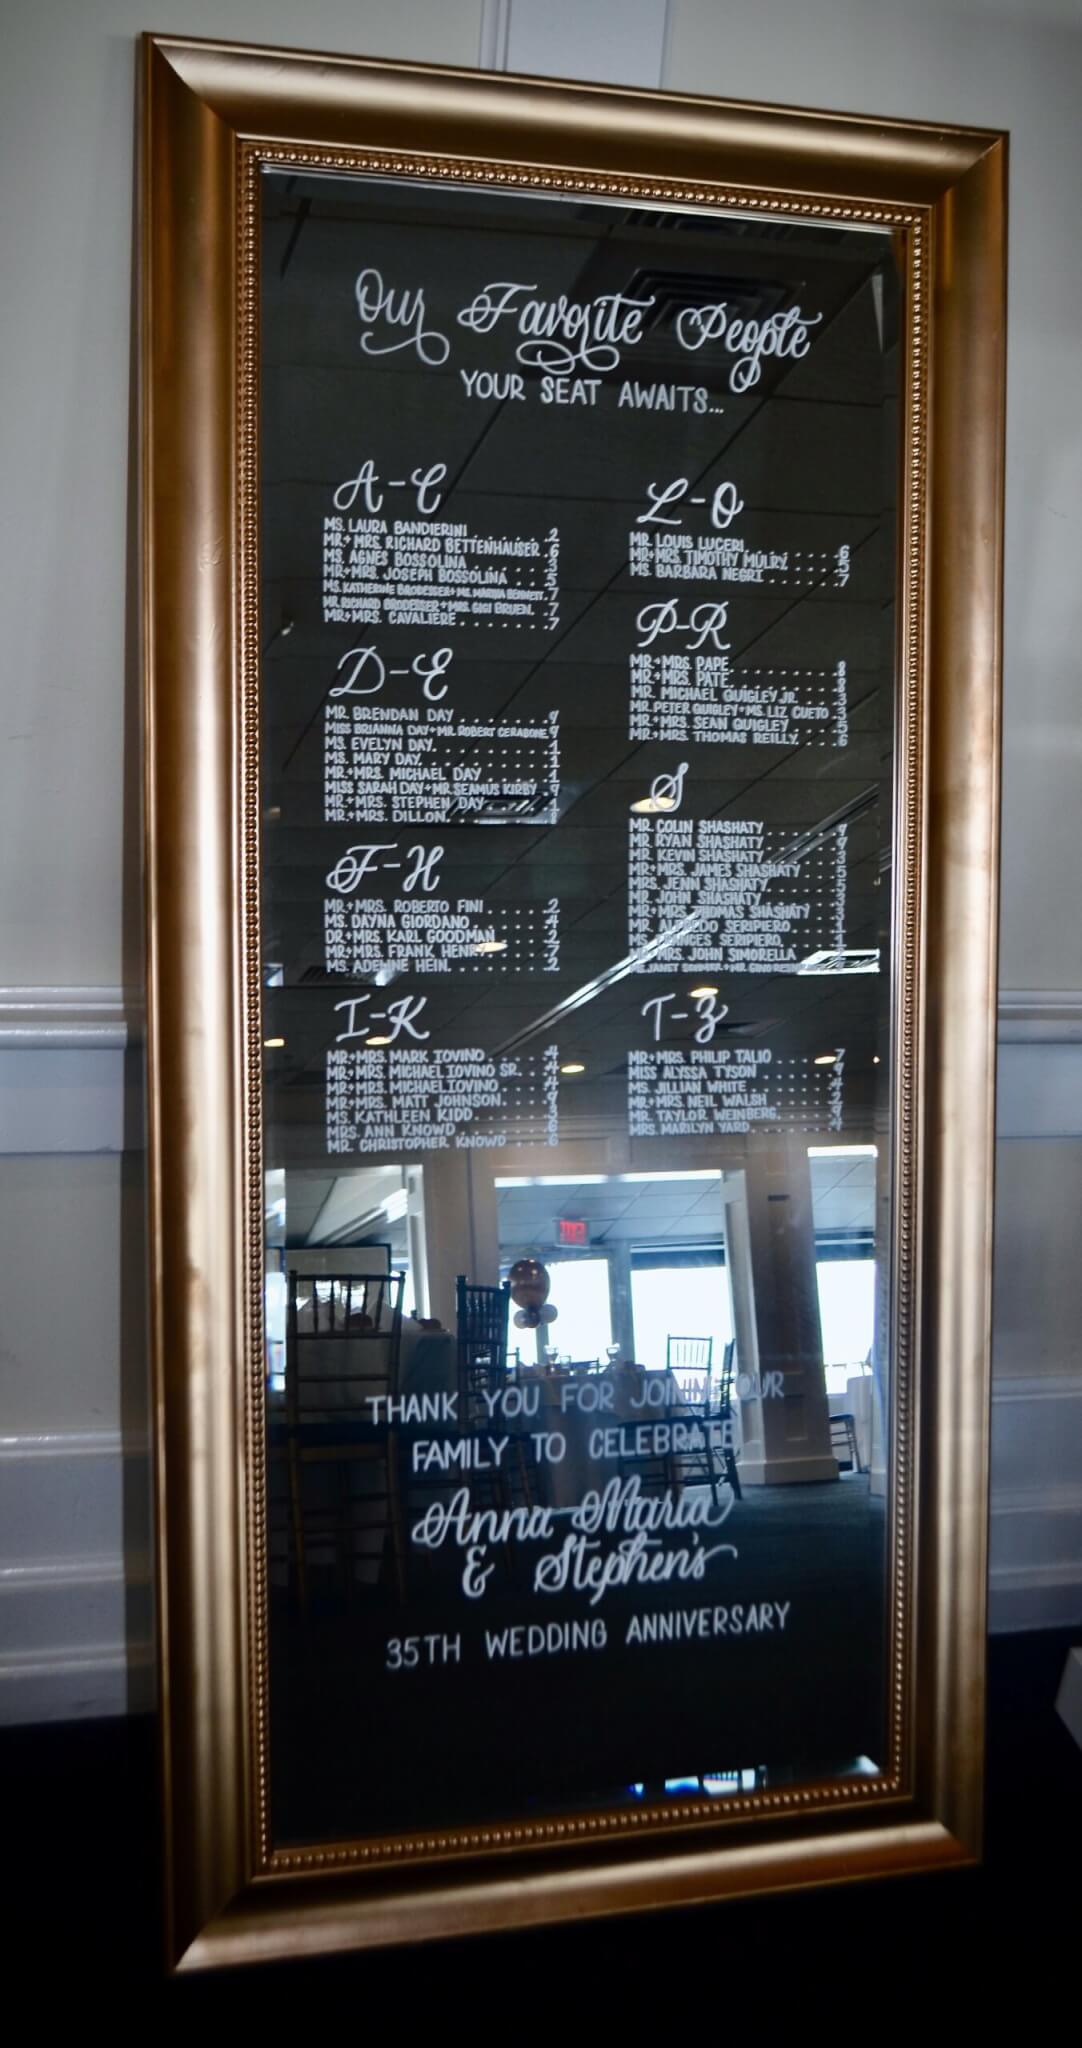 Our Favorite People
YOUR SEAT AWAITS...
A-C
MS. LAURA BANDIERINI . . . . . . . 2
MR.+MRS. RICHARD BETTENHAUSER . 6
MS. AGNES BOSSOLINA . . . . . . . 3
MR.+MRS. JOSEPH BOSSOLINA . . . 5
MS. KATHERINE BRODESSER+MS. MARTHA BENNETT. 7
MR. RICHARD BRODESSER+MRS. GIGI BRUEN. . 7
MR.+MRS. CAVALIERE . . . . . . . 7
D-E
MR. BRENDAN DAY . . . . . . . 9
MISS BRIANNA DAY+MR. ROBERT CERABONE 9
MS. EVELYN DAY. . . . . . . . . 1
MS. MARY DAY. . . . . . . . . . 1
MR.+MRS. MICHAEL DAY . . . . . . 1
MISS SARAH DAY+MR. SEAMUS KIRBY . 9
MR.+MRS. STEPHEN DAY . . . . . . 1
MR.+MRS. DILLON. . . . . . . . 8
F-H
MR.+MRS. ROBERTO FINI . . . . . 2
MS. DAYNA GIORDANO. . . . . . 4
DR.+MRS. KARL GOODMAN . . . . 2
MR.+MRS. FRANK HENRY . . . . . 7
MS. ADELINE HEIN. . . . . . . . 2
I-K
MR.+MRS. MARK IOVINO . . . . . 4
MR.+MRS. MICHAEL IOVINO SR. . . . 4
MR.+MRS. MICHAEL IOVINO . . . . 4
MR.+MRS. MATT JOHNSON. . . . . 9
MS. KATHLEEN KIDD. . . . . . . 3
MRS. ANN KNOWD . . . . . . . 6
MR. CHRISTOPHER KNOWD . . . . 6
L-O
MR. LOUIS LUCERI. . . . . . . . 6
MR.+MRS. TIMOTHY MULRY. . . . . 5
MS. BARBARA NEGRI . . . . . . . 7
P-R
MR.+MRS. PAPE. . . . . . . . . 8
MR.+MRS. PATE. . . . . . . . . 8
MR. MICHAEL QUIGLEY JR. . . . . 3
MR. PETER QUIGLEY+MS. LIZ CUETO . 3
MR.+MRS. SEAN QUIGLEY. . . . . 5
MR.+MRS. THOMAS REILLY. . . . 6
S
MR. COLIN SHASHATY . . . . . . 9
MR. RYAN SHASHATY . . . . . . 9
MR. KEVIN SHASHATY . . . . . . 3
MR.+MRS. JAMES SHASHATY . . . 5
MRS. JENN SHASHATY. . . . . . 5
MR. JOHN SHASHATY. . . . . . 3
MR.+MRS. THOMAS SHASHATY . . . 3
MR. ALFREDO SERIPIERO. . . . . 1
MS. FRANCES SERIPIERO. . . . . 1
MRS. JOHN SIMORELLA
MS. JANET SOMMER+MR. GINO
T-Z
MR.+MRS. PHILIP TALIO . . . . . 7
MISS ALYSSA TYSON . . . . . . 9
MS. JILLIAN WHITE . . . . . . . 4
MR.+MRS. NEIL WALSH . . . . . 2
MR. TAYLOR WEINBERG. . . . . 9
MRS. MARILYN YARD. . . . . . . 4
THANK YOU FOR JOINING OUR
FAMILY TO CELEBRATE
Anna Maria
& Stephen's
35TH WEDDING ANNIVERSARY